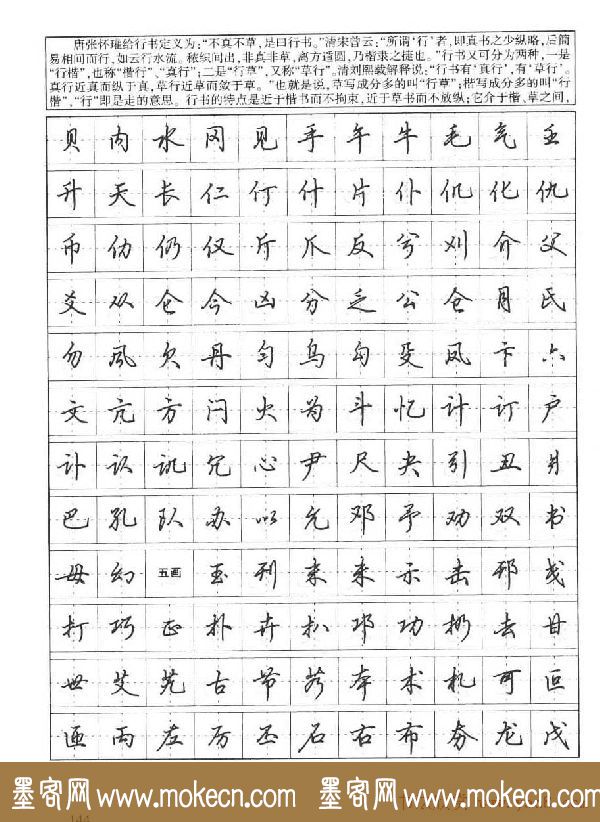 唐张怀瓘给行书定义为:“不真不草,是曰行书。”清宋曹云:“所谓‘行’者,即真书之少纵略,后简
易相间而行,如云行水流。秾纤间出,非真非草,离方遁圆,乃楷隶之捷也。”行书又可分为两种,一是
“行楷”,也称“楷行”、“真行”;二是“行草”,又称“草行”。清刘熙载解释说:“行书有‘真行’,有‘草行’。
真行近真而纵于真,草行近草而敛于草。”也就是说,草写成分多的叫“行草”;楷写成分多的叫“行
楷”,“行”即是走的意思。行书的特点是近于楷书而不拘束,近于草书而不放纵;它介于楷、草之间,
贝 内 水 冈 见 手 午 牛 毛 气 壬
升 夭 长 仁 仃 什 片 仆 仉 化 仇
币 仂 仍 仅 斤 爪 反 兮 刈 介 父
爻 从 仑 今 凶 分 乏 公 仓 月 氏
勿 风 欠 丹 匀 乌 勾 殳 凤 卞 六
文 亢 方 闩 火 为 斗 忆 计 订 户
讣 认 讥 冗 心 尹 尺 夬 引 丑 爿
巴 孔 队 办 以 允 邓 予 劝 双 书
毋 幻 五画 玉 刊 末 未 示 击 邗 戋
打 巧 正 朴 卉 扒 邛 功 扔 去 甘
世 艾 艽 古 节 本 术 札 可 叵
匝 丙 左 厉 丕 石 右 布 夯 龙 戊
墨客网 www.mokecn.com 墨客网 www.mokecn.com